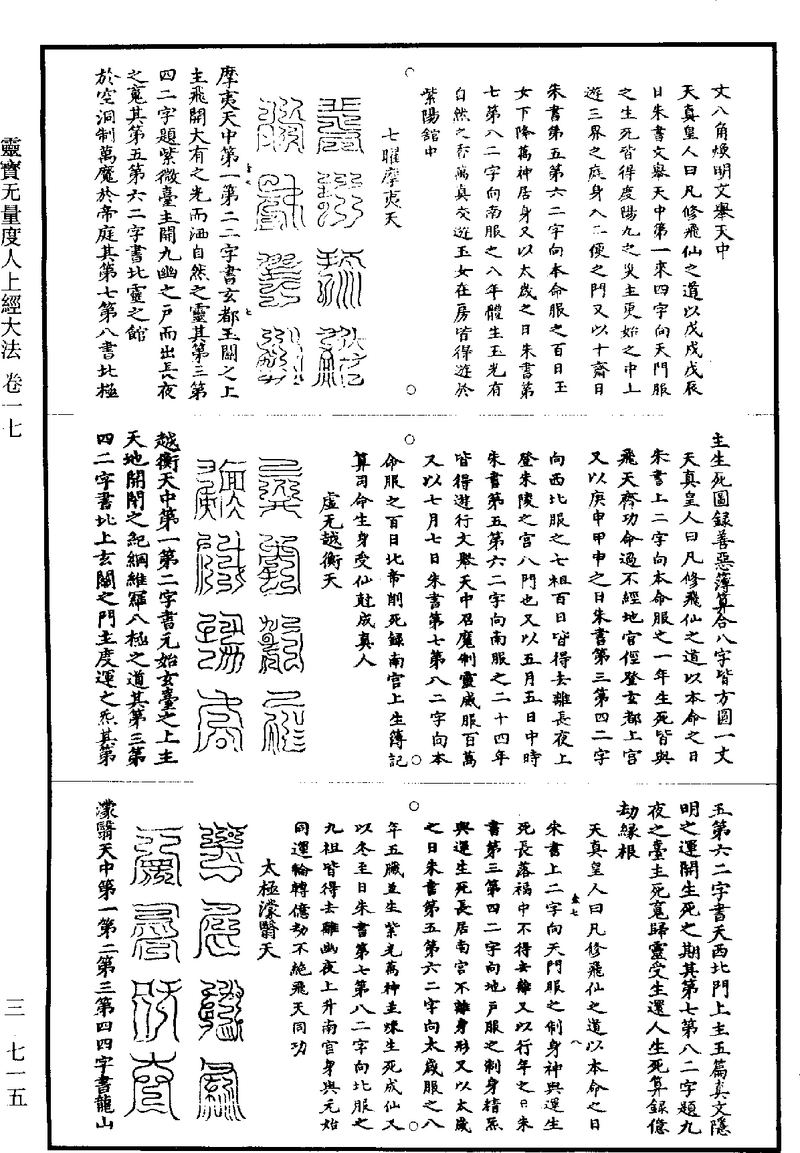 丈八角煥明文舉天中
天真皇人曰凡修飛仙之道以戊戌戊辰
日朱書文舉天中第一來四字向天門服
之生死皆得度陽九之災主更始之中上
遊三界之庭身入二便之門又以十齋日
朱書第五第六二字向本命服之百日玉
女下降萬神居身又以太歲之日朱書第
七第八二字向南服之八年體生玉光有
自然之香萬真交遊玉女在房皆得遊於
紫陽舘中
七曜摩夷天
摩夷天中第一第二二字書玄都玉闕之上
主飛開大有之光而洒自然之靈其第三第
四二字題紫微臺主開九幽之戸而出長夜
之䰟其第五第六二字書北靈之館
於空洞制萬魔於帝庭其第七第八書北極
主生死圖錄善惡簿算合八字皆方圓一丈
天真皇人曰凡修飛仙之道以本命之日
朱書上二字向本命服之一年生死皆與
飛天齊功命過不經地官徑登玄都上宮
又以庚申甲申之日朱書第三第四二字
向西北服之七祖百日皆得去離長夜上
登朱陵之宮八門也又以五月五日中時
朱書第五第六二字向南服之二十四年
皆得遊行文舉天中召魔制靈威服百萬
又以七月七日朱書第七第八二字向本
命服之百日北帝削死錄南宮上生簿記
算司命生身受仙尅成真人
虛无越衡天
越衡天中第一第二字書元始玄臺之上主
天地開閉之紀綱維羅八極之道其第三第
四二字書北上玄闕之門主度運之炁其第
五第六二字書天西北門上主五篇真文隱
明之運開生死之期其第七第八二字題九
夜之臺主死䰟歸靈受生還人生死算錄億
劫緣根
天真皇人曰凡修飛仙之道以本命之日
朱書上二字向天門服之制身神與運生
死長落福中不得去離又以行年之日朱
書第三第四二字向地戸服之制身精炁
與運生死長居南宮不離身形又以太歲
之日朱書第五第六二字向太歲服之八
年五臟並生紫光萬神並煉生死成仙又
以冬至日朱書第七第八二字向北服之
九祖皆得去離幽夜上升南宮身與元始
同運輪轉億劫不絕飛天同功
太極濛翳天
濛翳天中第一第二第三第四四字書龍山
靈寶无量度人上經大法 卷一七
三 七一五